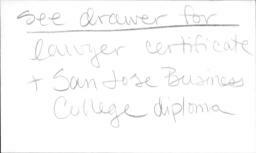 see drawer for
lawyer certificate
+ San Jose Business
College diploma